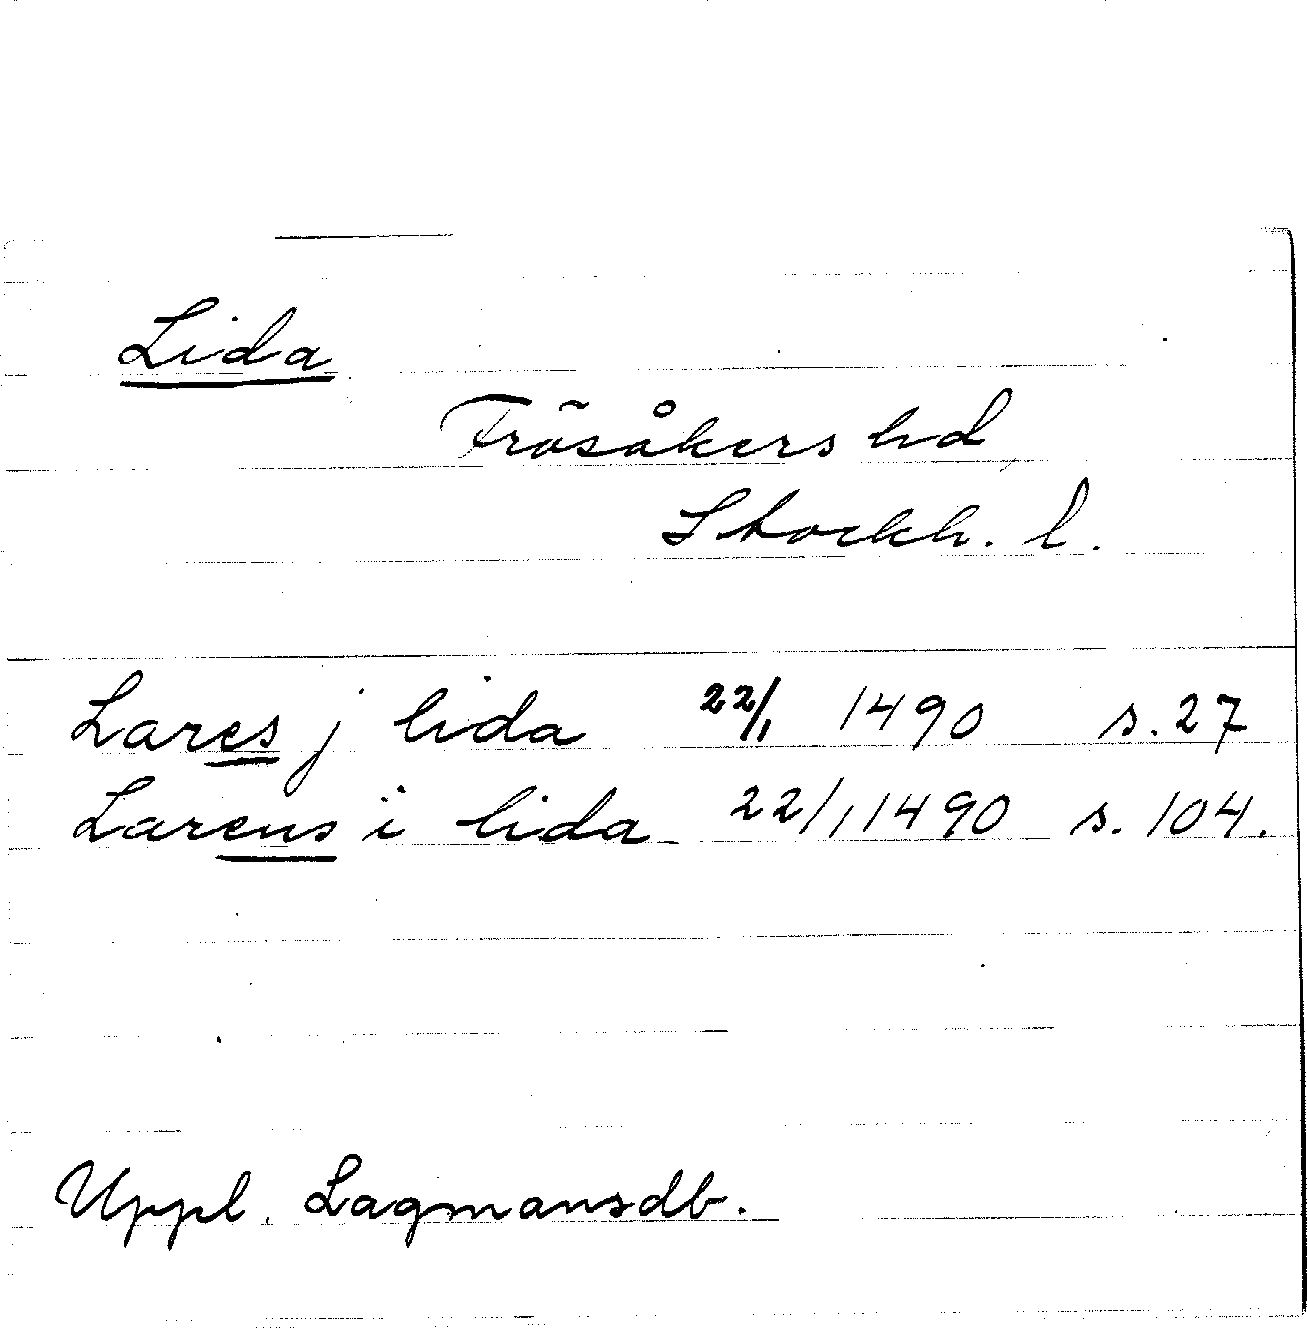 Lida
Frösåkers hd
Stockh. l.
Lares j lida 22/1 1490 s. 27
Larens i lida 22/1 1490 s. 104.
Uppl. Lagmansdb.